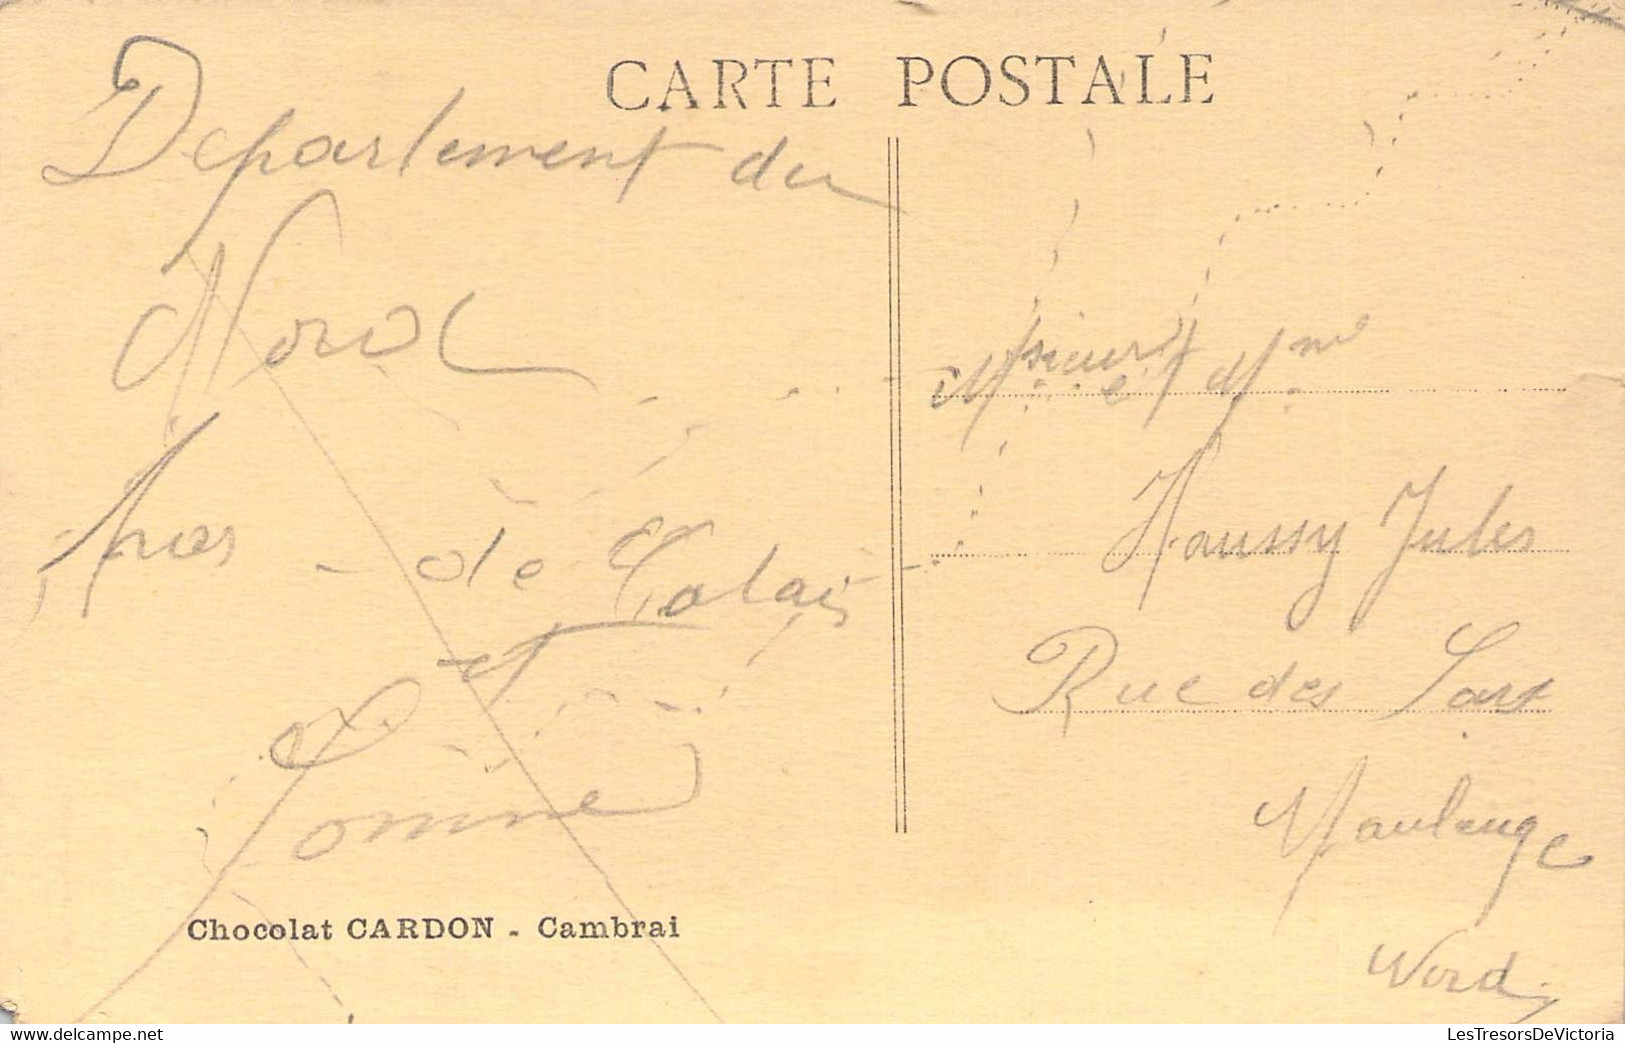 CARTE POSTALE
Departement du
Nord
Pas-de Calais
et
Somme
Chocolat CARDON - Cambrai
Msieur et Mme
Haussy Jules
Rue des Sars
Maubeuge
Nord
LesTresorsDeVictoria.com